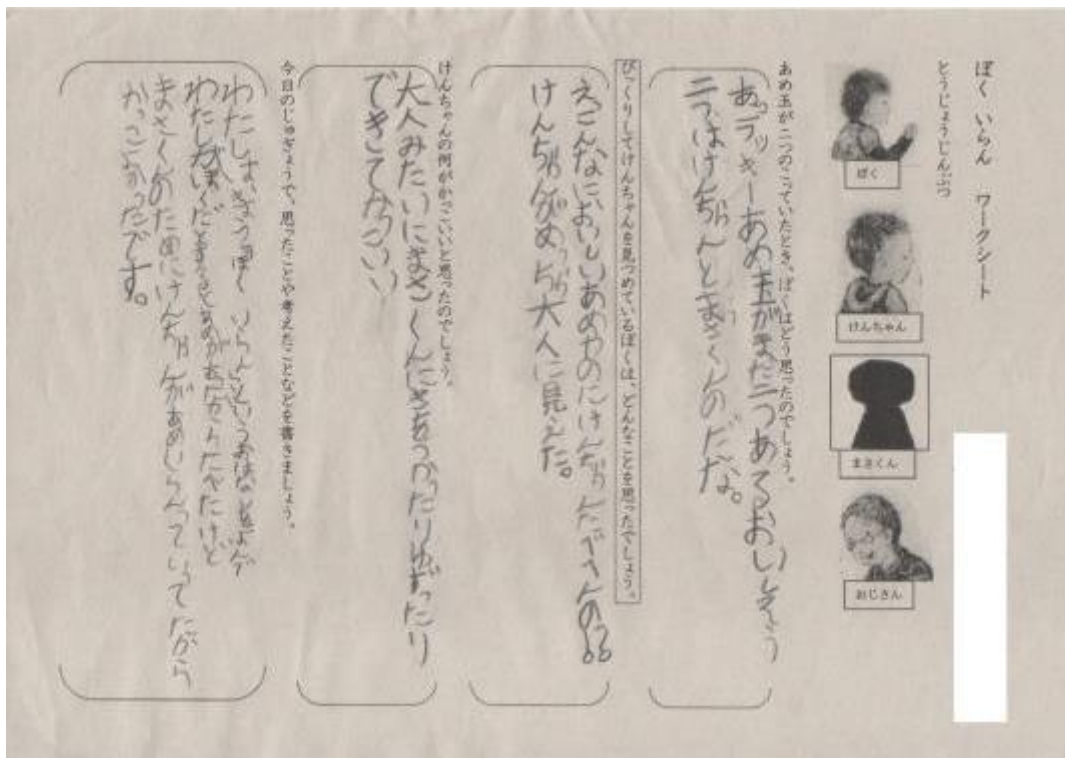 ぼく いらん ワークシート
とうじょうじんぶつ
ぼく
けんちゃん
まさくん
おじさん
あめ玉が二つのこっていたとき、ぼくはどう思ったのでしょう。
あっラッキーあめ玉がまだ二つあるおいしそう
二つはけんちゃんとまさくんのだな。
びっくりしてけんちゃんを見つめているぼくは、どんなことを思ったでしょう。
えこんなにおいしいあめやのにけんちゃんたべへんの
けんちゃんがめっちゃ大人に見えた。
けんちゃんの何がかっこいいと思ったのでしょう。
大人みたいにまさくんにきをつかったりゆずったり
できてかっこいい
今日のじゅぎょうで、思ったことや考えたことなどを書きましょう。
わたしは、きょうぼく いらんというおはなしをよんで
わたしがぼくだと
まさくんのためにけんちゃんがあめいらんっていってたから
かっこよかったです。